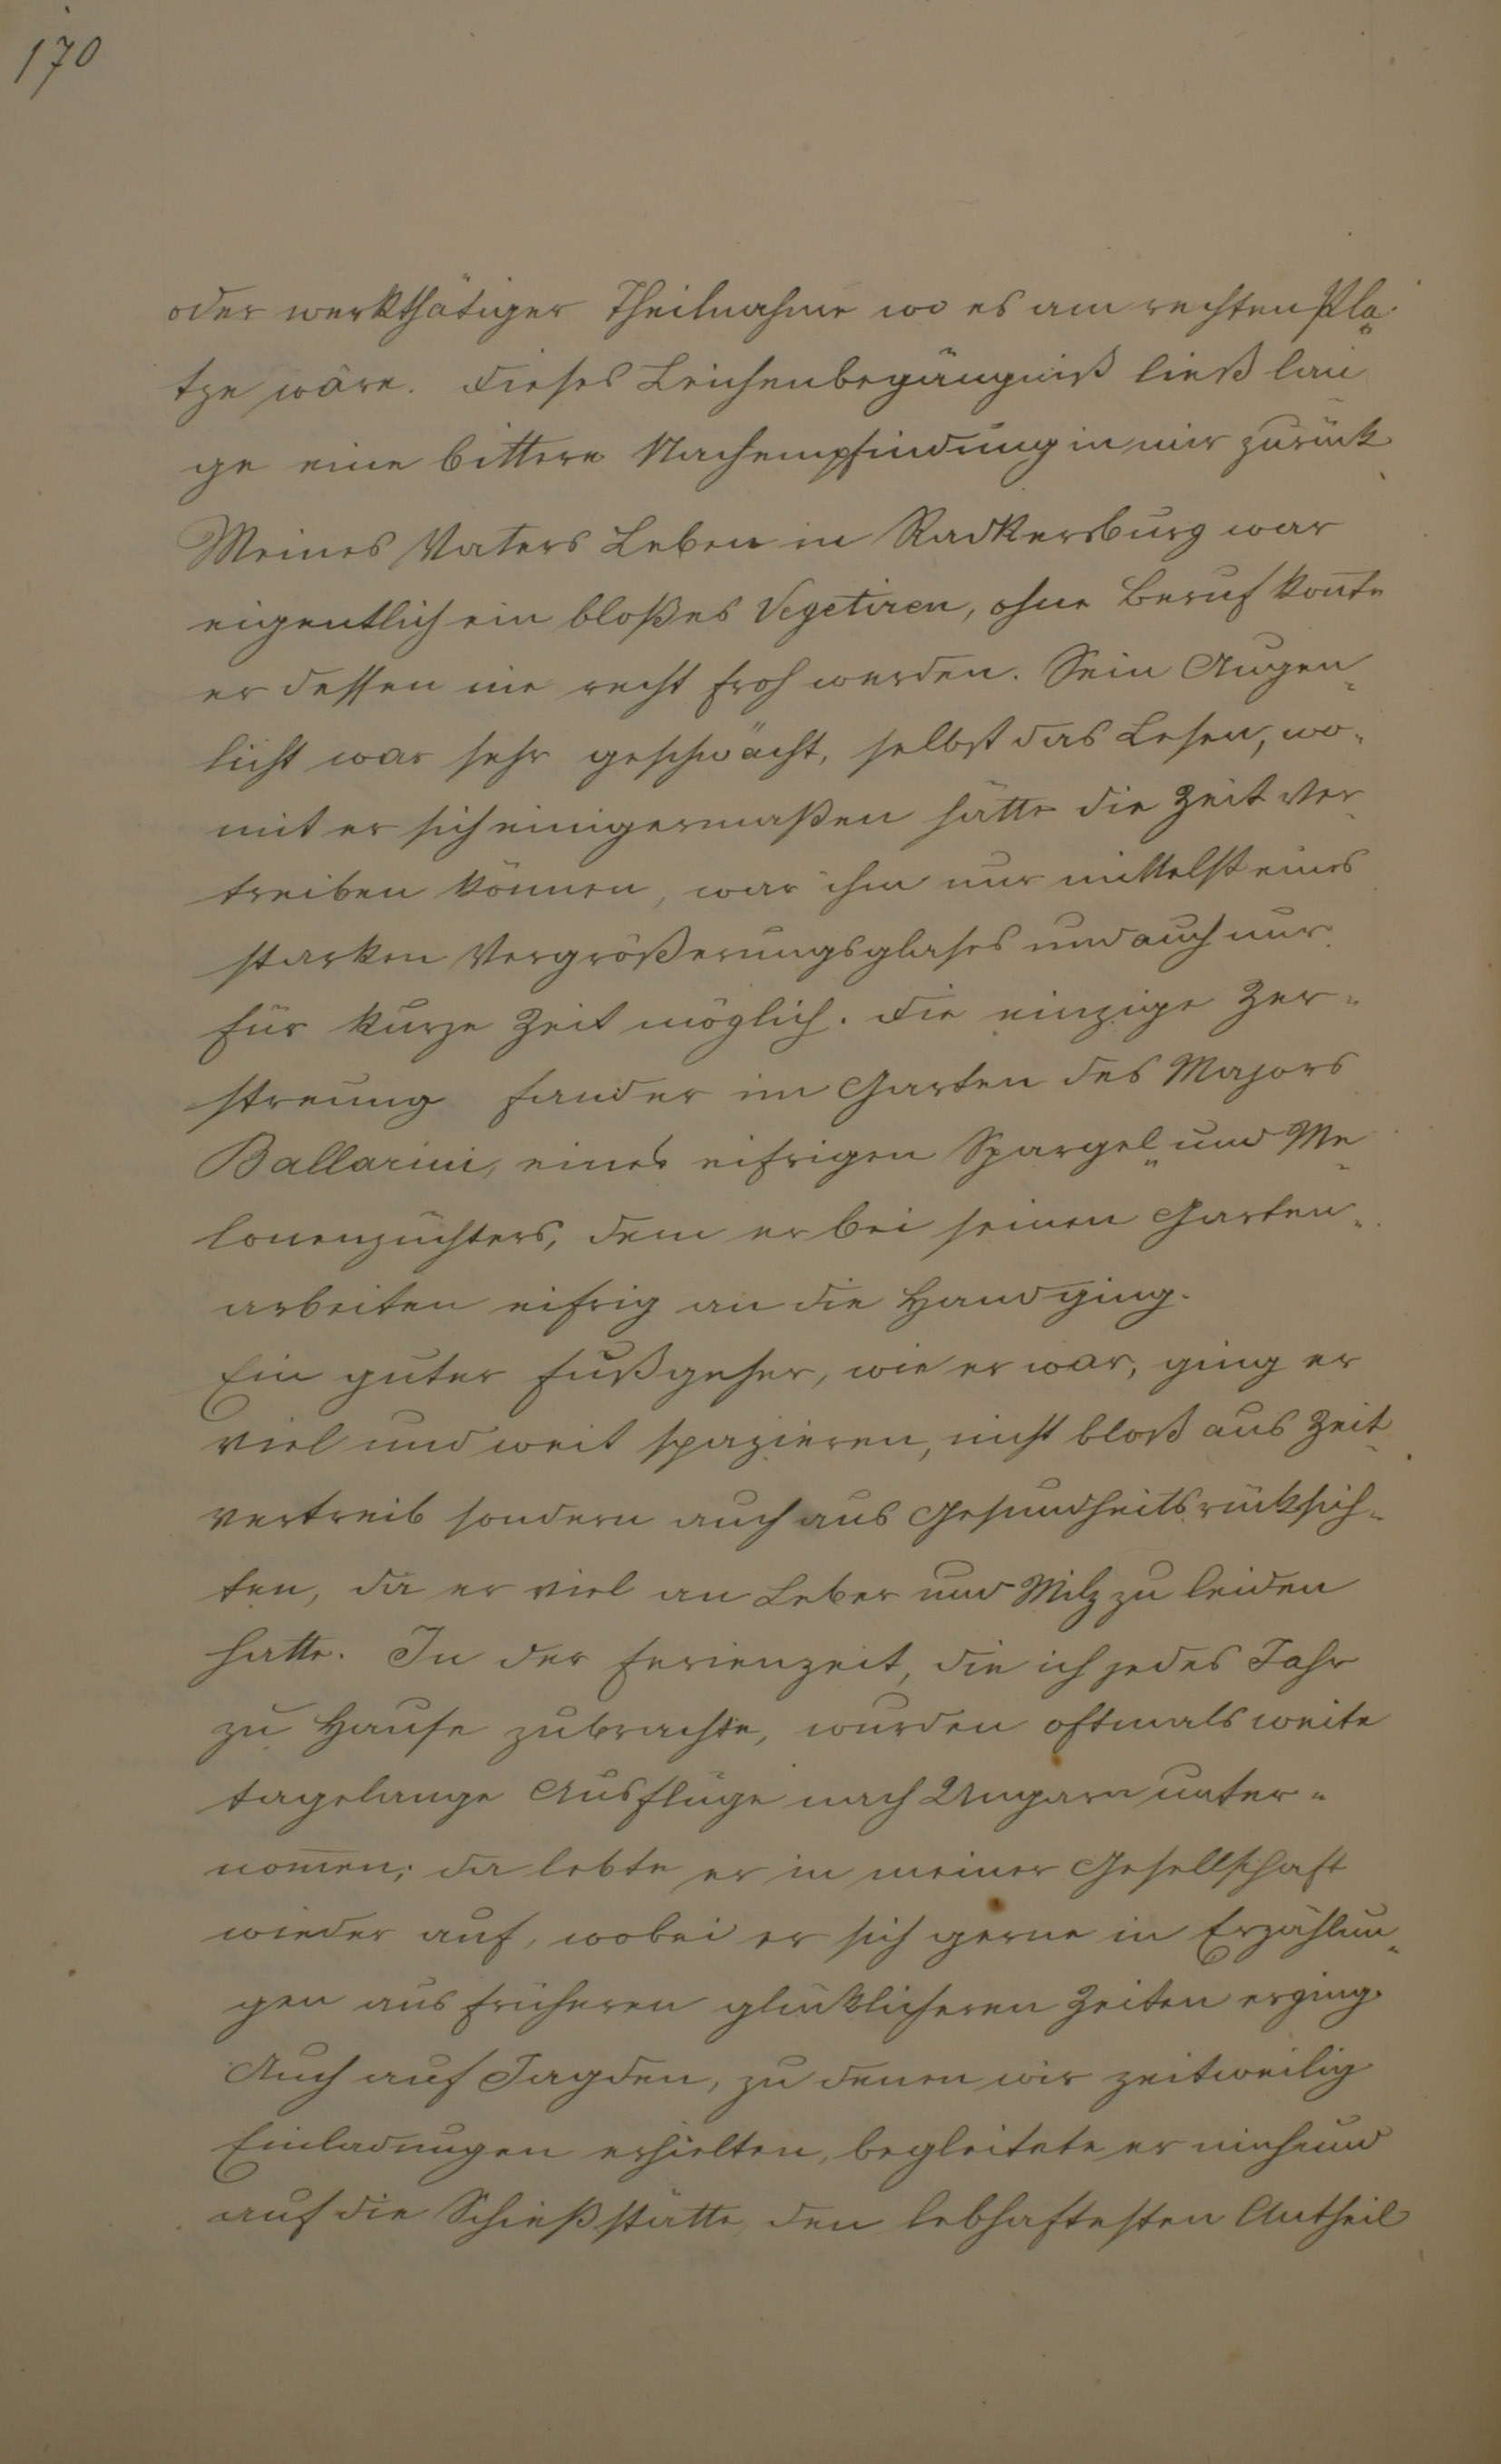 170
oder werkthätiger Theilnahme wo es am rechten Pla„
tze wäre. Dieses Leichenbegängniß ließ lan
ge eine bittere Nachempfindung in mir zurück
Meines Vaters Leben in Radkersburg war
eigentlich ein bloßes Vegetiren, ohne Beruf kon̄te
er dessen nie recht froh werden. Sein Augen„
licht war sehr geschwächt, selbst das Lesen, wo„
mit er sich einigermaßen hätte die Zeit ver„
treiben können, war ihm nur mittelst eines
starken Vergrößerungsglases und auch nur
für kurze Zeit möglich. Die einzige Zer„
streuung fand er im Garten des Majors
Ballarini, eines eifrigen Spargel„ und Me„
lonenzüchters, dem er bei seinen Garten„
arbeiten eifrig an die Hand ging.
Ein guter Fußgeher, wie er war, ging er
viel und weit spazieren, nicht bloß aus Zeit„
vertreib sondern auch aus Gesundheitsrücksich„
ten, da er viel an Leber und Milz zu leiden
hatte. In der Ferienzeit, die ich jedes Jahr
zu Hause zubrachte, wurden oftmals weite
tagelange Ausflüge nach Ungarn unter„
nom̄en; da lebte er in meiner Gesellschaft
wieder auf, wobei er sich gerne in Erzählun„
gen aus früheren glücklicheren Zeiten erging.
Auch auf Jagden, zu denen wir zeitweilig
Einladungen erhielten, begleitete er mich und
auf die Schießstätte, den lebhaftesten Antheil